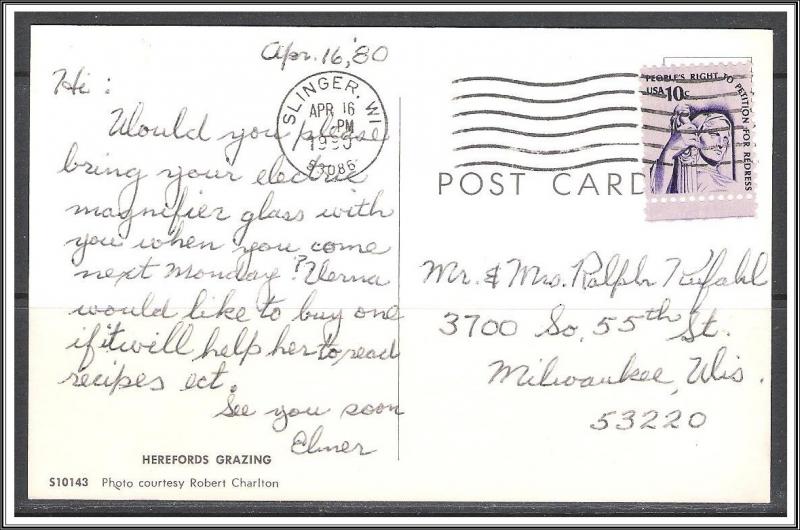 Apr. 16, '80
Hi:
Would you please
bring your electric
magnifier glass with
you when you come
next Monday? Verna
would like to buy one
if it will help her to, read
recipes ect.
See you soon
Elmer
HEREFORDS GRAZING
S10143 Photo courtesy Robert Charlton
SLINGER, WI
APR 16
PM
53086
PEOPLE'S RIGHT TO PETITION FOR REDRESS
USA 10c
POST CARD
Mr. & Mrs. Ralph Kufahl
3700 So. 55th St.
Milwaukee, Wis.
53220